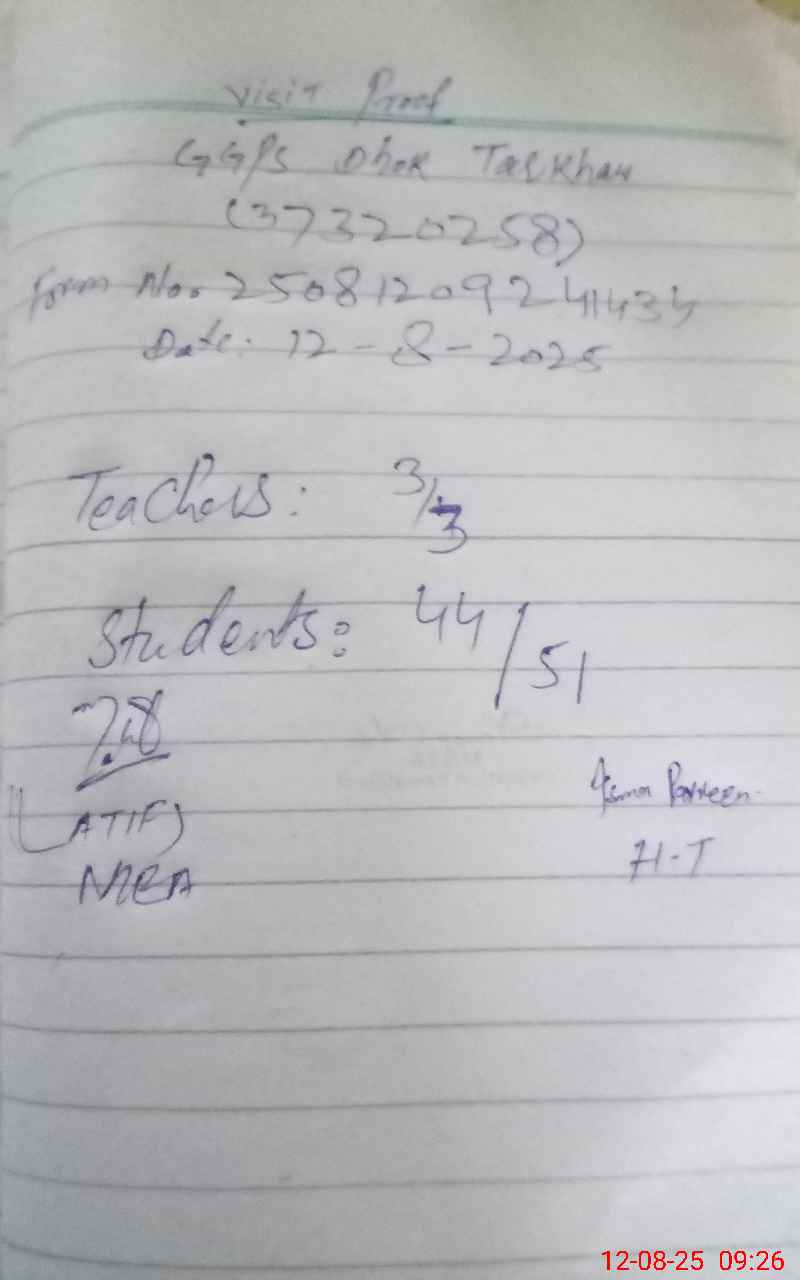 Visit Proof
GGPS Dhok Tarkhan
(37320258)
Form No. 25081209241434
Date. 12-8-2025
Teachers: 3/3
Students: 44/51
(LATIF)
MEA
Asma Parveen
H-T
12-08-25 09:26